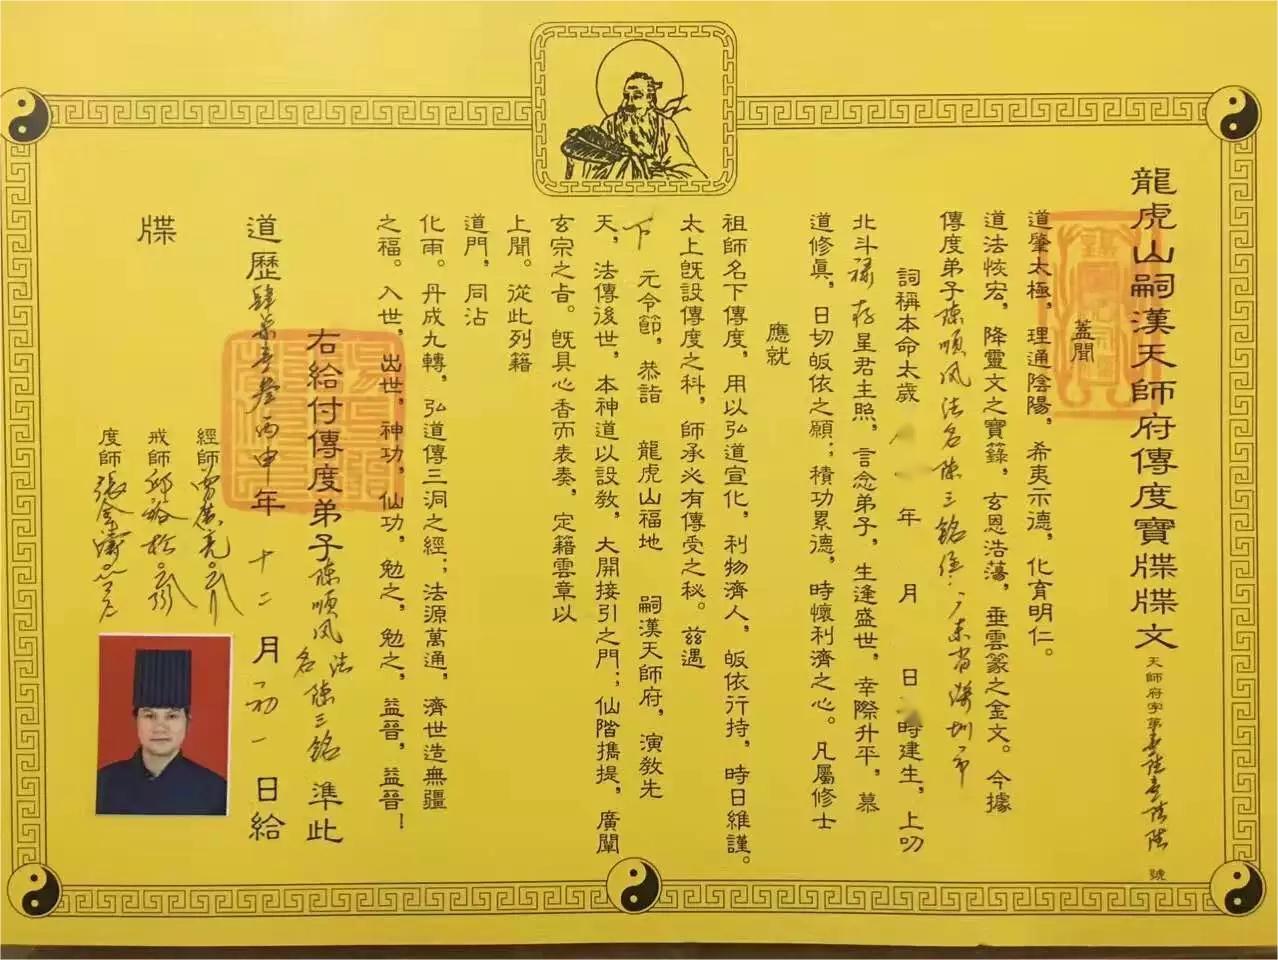 龍虎山嗣漢天師府傳度寶牒牒文
天師府字第 號
蓋聞
道肇太極，理通陰陽，希夷示德，化育明仁。
道法恢宏，降靈文之寶籙，玄恩浩蕩，垂雲篆之金文。今據
傳度弟子陳順风法名陳三銘係：广东省深圳市
詞稱本命太歲 年 月 日 時建生，上叨
北斗祿存星君主照，言念弟子，生逢盛世，幸際升平，慕
道修眞，日切皈依之願；積功累德，時懷利濟之心。凡屬修士
應就
祖師名下傳度，用以弘道宣化，利物濟人，皈依行持，時日維謹。
太上旣設傳度之科，師承必有傳受之秘。茲遇
下元令節，恭詣 龍虎山福地 嗣漢天師府，演教先
天，法傳後世，本神道以設教，大開接引之門；仙階擕提，廣闡
玄宗之旨。旣具心香而表奏，定籍雲章以
上聞。從此列籍
道門，同沾
化雨。丹成九轉，弘道傳三洞之經；法源萬通，濟世造無疆
之福。入世，出世，神功，仙功，勉之，勉之，益晉，益晉！
右給付傳度弟子陳順风法名陳三銘 準此
道歷肆柒壹叁丙申年十二月初一日給
牒
經師曾廣亮
戒師邱裕松
度師張金濤